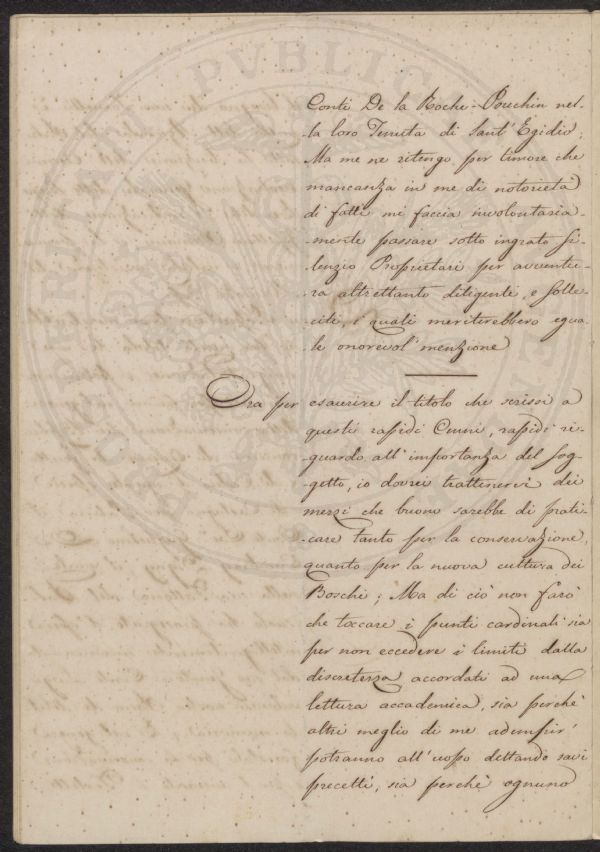 Conti De la Roche-Pouchin nel-
-la loro Tenuta di Sant' Egidio;
Ma me ne ritengo per timore che
mancanza in me di notorietà
di fatti mi faccia involontaria-
-mente passare sotto ingrato si-
-lenzio Proprietari per avventu-
-ra altrettanto diligenti, e solle-
-citi, i quali meriterebbero egua-
-le onorevol' menzione
Ora per esaurire il titolo che scrissi a
questi rapidi Cenni, rapidi ri-
-guardo all' importanza del sog-
-getto, io dovrei trattenervi dei
mezzi che buono sarebbe di prati-
-care tanto per la conservazione,
quanto per la nuova cultura dei
Boschi; Ma di ciò non farò
che toccare i punti cardinali sia
per non eccedere i limiti dalla
discretezza accordati ad una
lettura accademica, sia perchè
altri meglio di me adempir'
potranno all' uopo dettando savi
precetti, sia perchè ognuno
PUBLIC